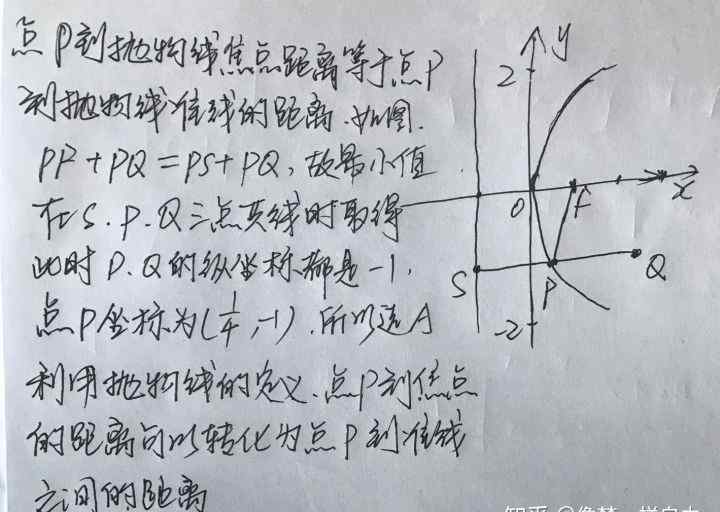 点P到抛物线焦点距离等于点P
到抛物线准线的距离.如图.
PF+PQ=PS+PQ,故最小值
在S.P.Q三点共线时取得
此时P.Q的纵坐标都是-1,
点P坐标为(1/4,-1).所以选A
利用抛物线的定义.点P到焦点
的距离可以转化为点P到准线
之间的距离
y
2
O
F
x
S
P
Q
-2